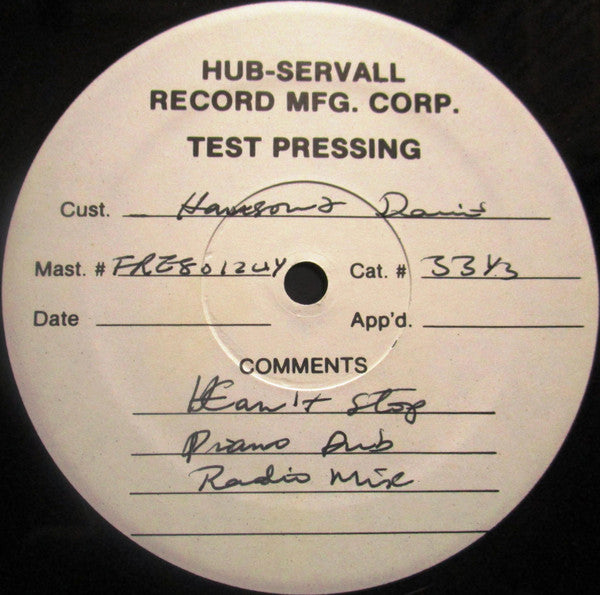 HUB-SERVALL
RECORD MFG. CORP.
TEST PRESSING
Cust. Hansome Davis
Mast. # FRE80124Y Cat. # 33 1/3
Date App'd.
COMMENTS
Can't Stop
Piano Dub
Radio Mix